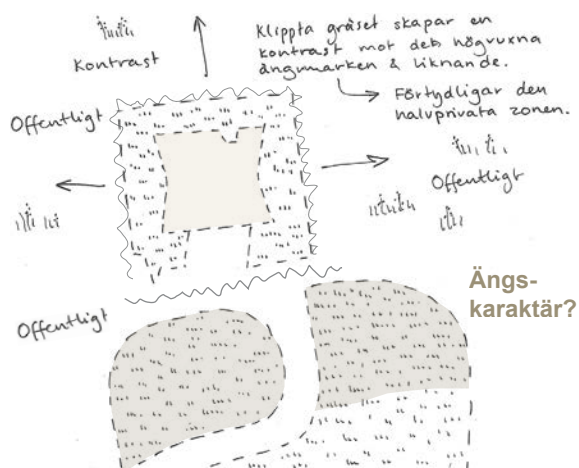 Klippta gräset skapar en
kontrast mot den högvuxna
ängsmarken & liknande.
Förtydligar den
halvprivata zonen.
Kontrast
Offentligt
Offentligt
Ängs-
karaktär?
Offentligt